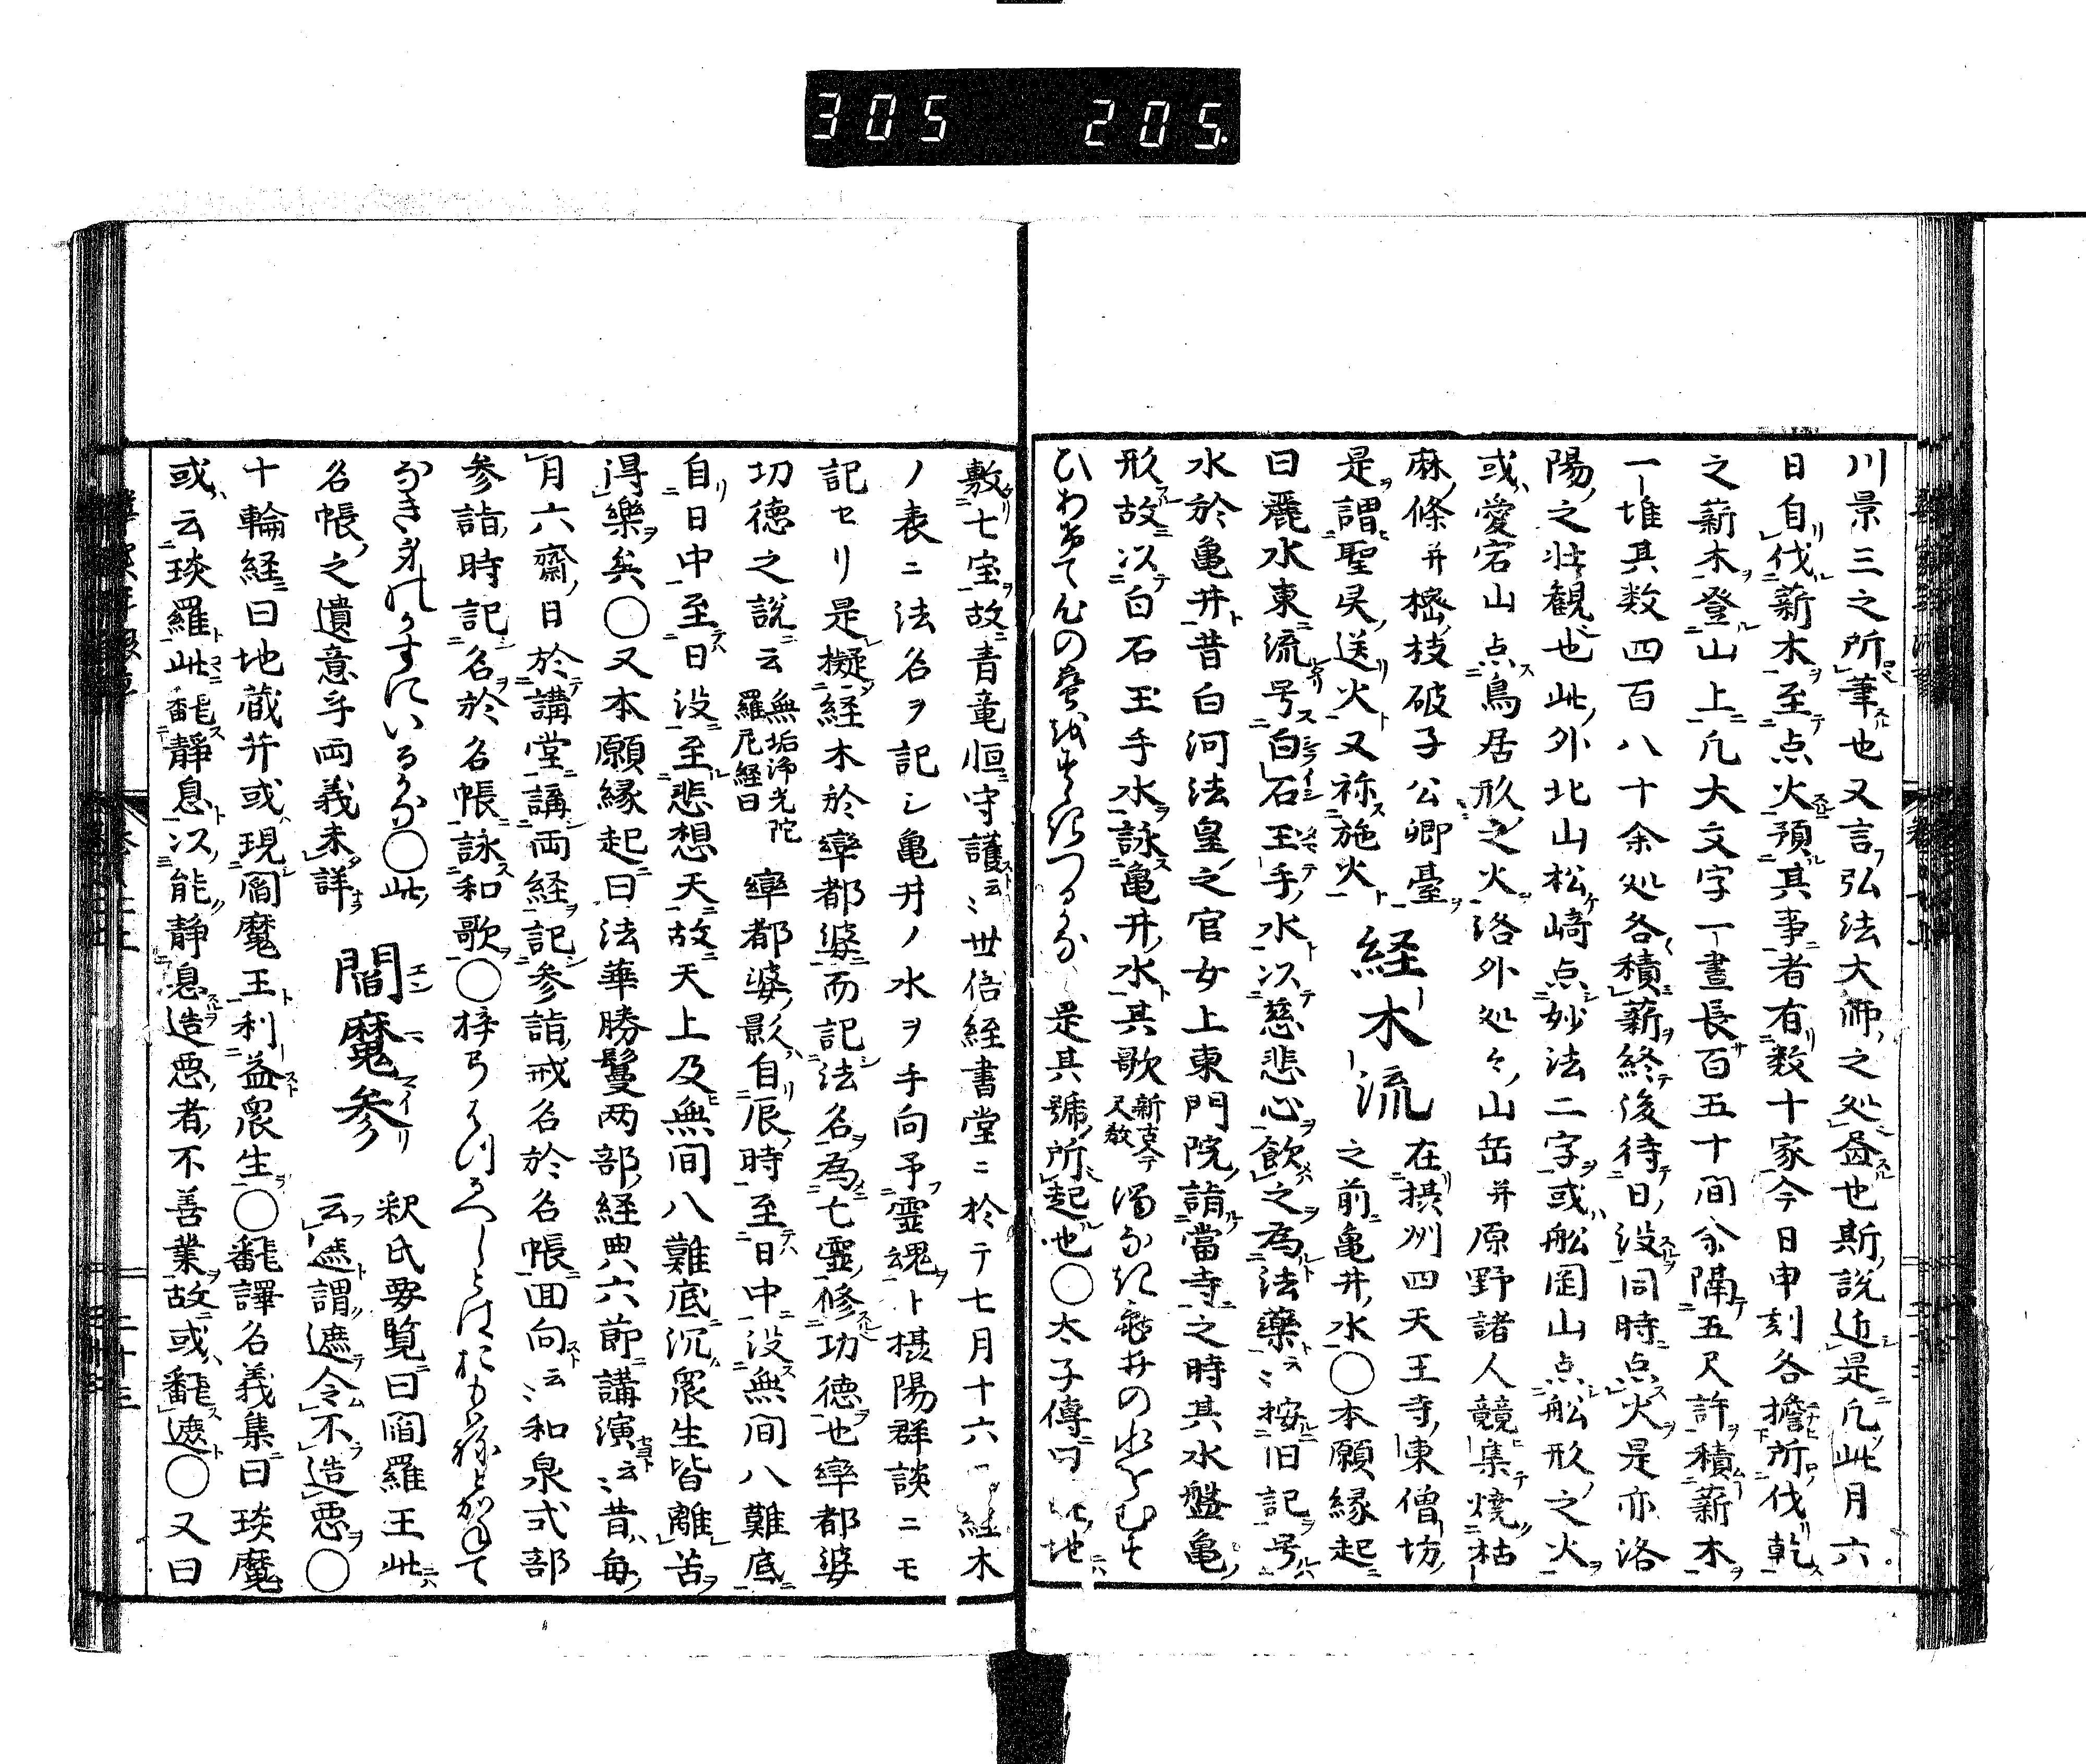 305 205.
川景三之所筆也又言弘法大师之処畫也斯説近是凢此月六
日自伐薪木至点火預其事者有数十家今日申刻各擔所伐乾
之薪木登山上凢大文字一畫長百五十間余隔五尺許積薪木
一堆其数四百八十余処各積薪終後待日没同時点火是亦洛
陽之壮観也此外北山松﨑点妙法二字或舩岡山点舩形之火
或愛宕山点鳥居形之火洛外処々山岳并原野諸人競集焼枯
麻條并樒枝破子公卿臺
是謂聖灵送火又称施火
経木流
在摂州四天王寺東僧坊
之前亀井水〇本願縁起
曰麗水東流号白石玉手水以慈悲心飲之為法藥云〻按旧記号
水於亀井昔白河法皇之官女上東門院詣當寺之時其水盤亀
形故以白石玉手水詠亀井水其歌
新古今
尺教
濁なき亀井の水をむす
ひあけて心の塵をすゝきつるかな 是其號所起也〇太子傳曰此地
敷七宝故青竜恒守護云〻世俗経書堂ニ於テ七月十六日経木
ノ表ニ法名ヲ記シ亀井ノ水ヲ手向予霊魂ト摂陽群談ニモ
記セリ是擬経木於率都婆而記法名為亡霊修功徳也率都婆
功徳之説云
無垢浄光陀
羅尼経曰
率都婆影自辰時至日中没無間八難底
自日中至日没至悲想天故天上及無間八難底沉衆生皆離苦
得樂矣〇又本願縁起曰法華勝鬘两部経典六節講演云〻昔毎
月六齋日於講堂講両経記参詣戒名於名帳囬向云〻和泉式部
参詣時記名於名帳詠和歌〇梓弓はつるへしとはおもへともかねて
なき身のかすにいるかな〇此
名帳之遺意乎両義未詳
閻魔参
釈氏要覧曰閻羅王此
云遮謂遮令不造悪〇
十輪経曰地蔵并或現閻魔王利益衆生〇翻譯名義集曰琰魔
或云琰羅此翻静息以能静息造悪者不善業故或翻遮〇又曰